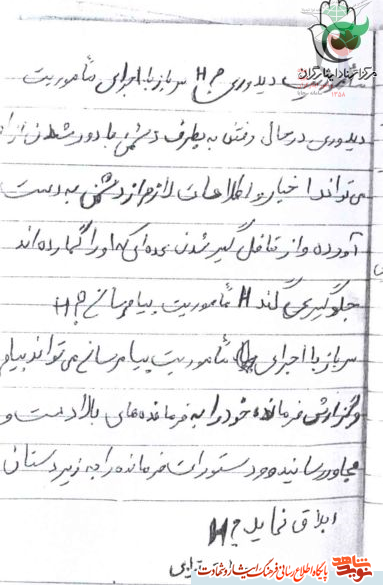 مرکز اسناد ایثارگران
۱۳۵۸
مأموریت دیدوری H? سرباز با اجرای مأموریت
دیدوری در حال رفتن به طرف دشمن یا دور شدن از او
می‌تواند اخبار و اطلاعات لازم از دشمن به دست
آورده و از غافل گیر شدن عده‌ای که او را گمارده اند
جلوگیری کند H مأموریت پیام رسانی H?
سرباز با اجرای مأموریت پیام رسانی می‌تواند پیام
و گزارش فرمانده خود را به فرمانده‌های بالا دست و
مجاور رسانیده و دستورات فرمانده را به زیر دستان
ابلاغ نماید H?
نوید شاهد
پایگاه اطلاع رسانی فرهنگ ایثار و شهادت